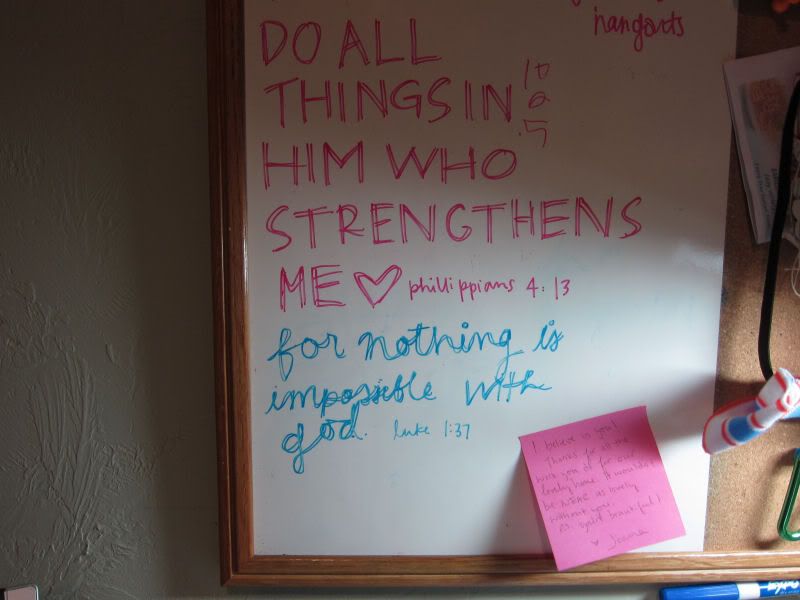 hangouts
DO ALL
THINGS IN
HIM WHO
STRENGTHENS
ME phillippians 4:13
for nothing is
impossible with
god. luke 1:37
I believe in you!
Thanks for all the
work you do for our
lovely home. It wouldn't
be NEAR as lovely
without you.
P.S. you're beautiful!
Joanna